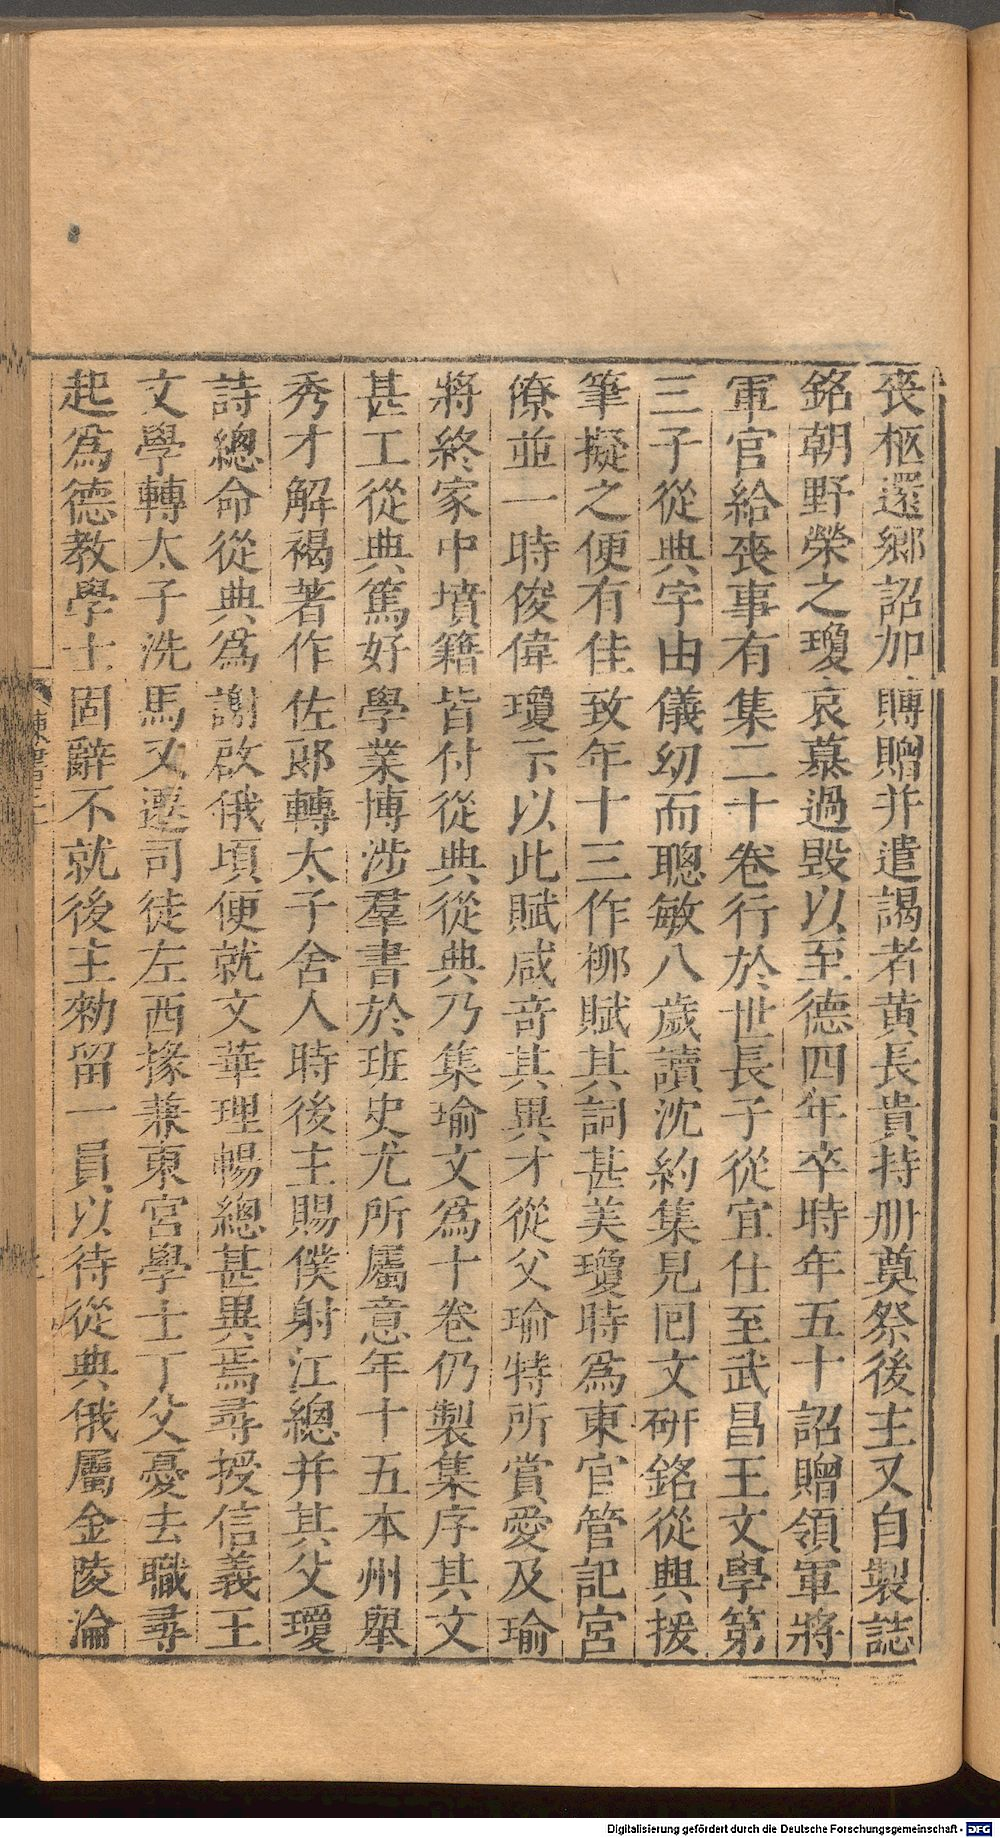 喪柩還鄉詔加賻贈并遣謁者黃長貴持冊奠祭後主又自製誌
銘朝野榮之瓊哀慕過毀以至德四年卒時年五十詔贈領軍將
軍官給喪事有集二十卷行於世長子從宜仕至武昌王文學第
三子從典字由儀幼而聰敏八歲讀沈約集見囘文研銘從典援
筆擬之便有佳致年十三作柳賦其詞甚美瓊時爲東宮管記宮
僚並一時俊偉瓊示以此賦咸奇其異才從父瑜特所賞愛及瑜
將終家中墳籍皆付從典從典乃集瑜文爲十卷仍製集序其文
甚工從典篤好學業博涉羣書於班史尤所屬意年十五本州舉
秀才解褐著作佐郎轉太子舍人時後主賜僕射江總并其父瓊
詩總命從典爲謝啟俄頃便就文華理暢總甚異焉尋授信義王
文學轉太子洗馬又遷司徒左西掾兼東宮學士丁父憂去職尋
起爲德教學士固辭不就後主勑留一員以待從典俄屬金陵淪
Digitalisierung gefördert durch die Deutsche Forschungsgemeinschaft - DFG